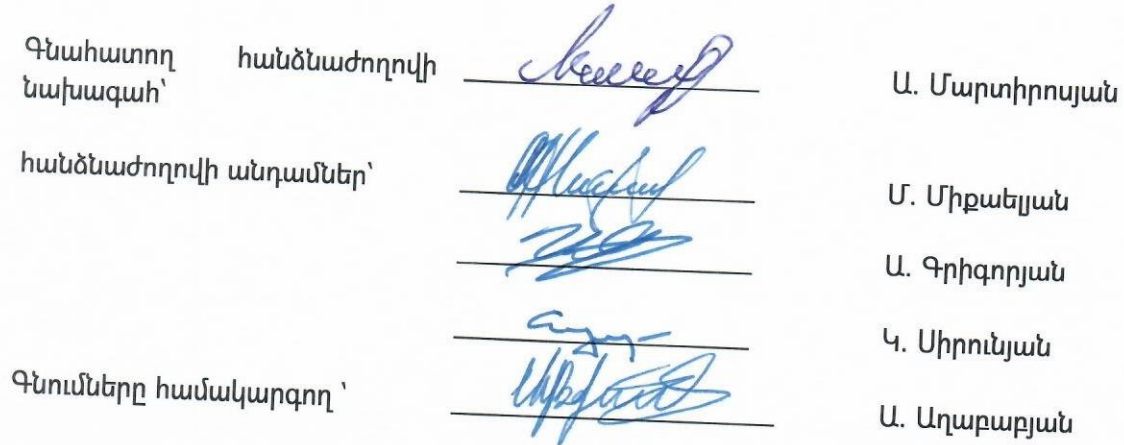 Գնահատող հանձնաժողովի Ա. Մարտիրոսյան
նախագահ՝
հանձնաժողովի անդամներ՝ Մ. Միքաելյան
Ա. Գրիգորյան
Կ. Սիրունյան
Գնումները համակարգող ՝ Ա. Աղաբաբյան